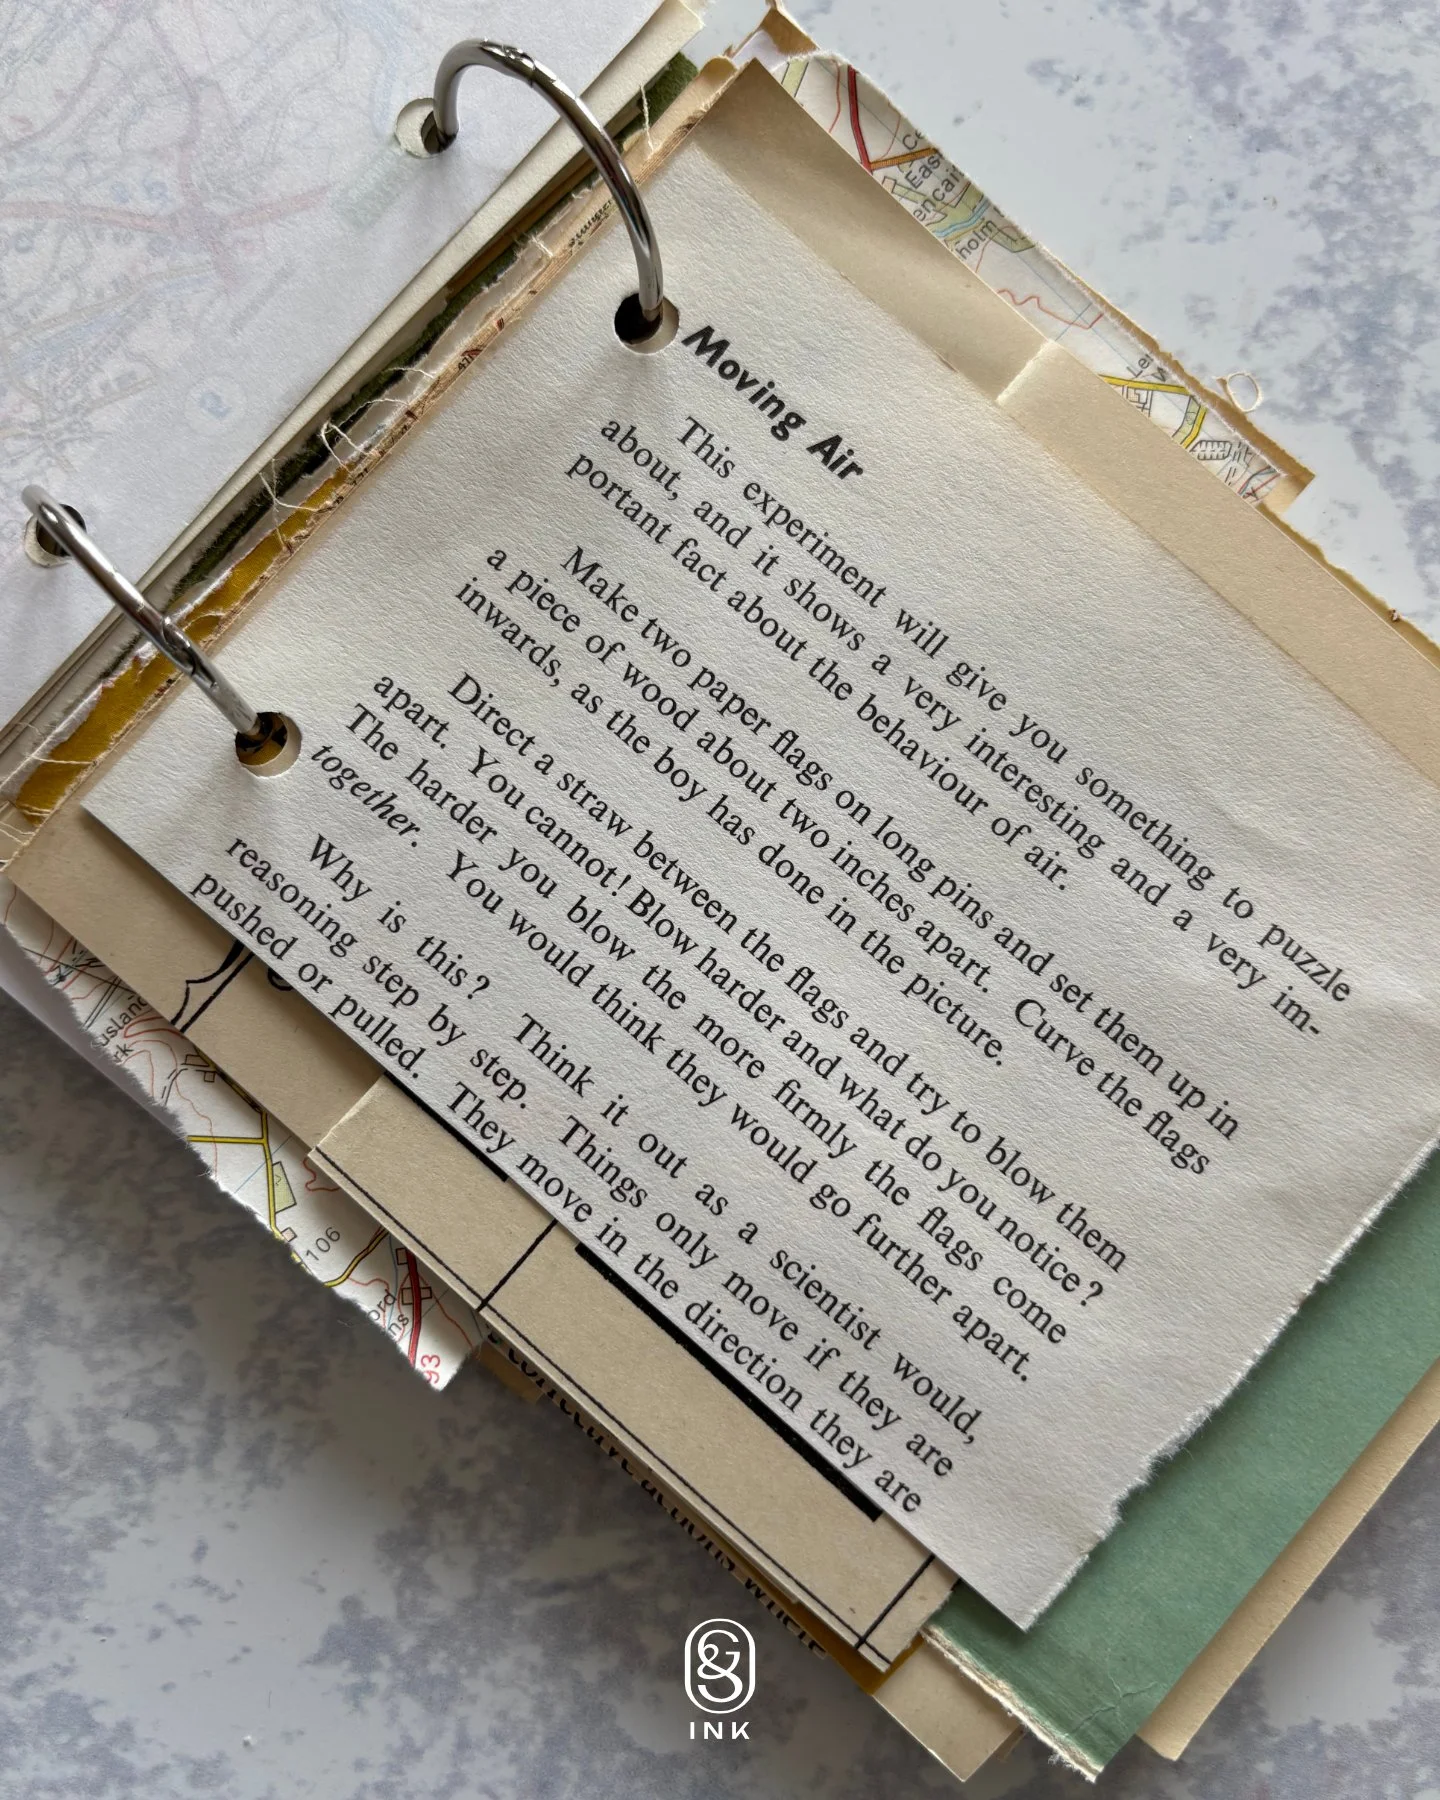 Moving Air
This experiment will give you something to puzzle
about, and it shows a very interesting and a very im-
portant fact about the behaviour of air.
Make two paper flags on long pins and set them up in
a piece of wood about two inches apart. Curve the flags
inwards, as the boy has done in the picture.
Direct a straw between the flags and try to blow them
apart. You cannot! Blow harder and what do you notice?
The harder you blow the more firmly the flags come
together. You would think they would go further apart.
Why is this? Think it out as a scientist would,
reasoning step by step. Things only move if they are
pushed or pulled. They move in the direction they are
holm
47
106
93
INK